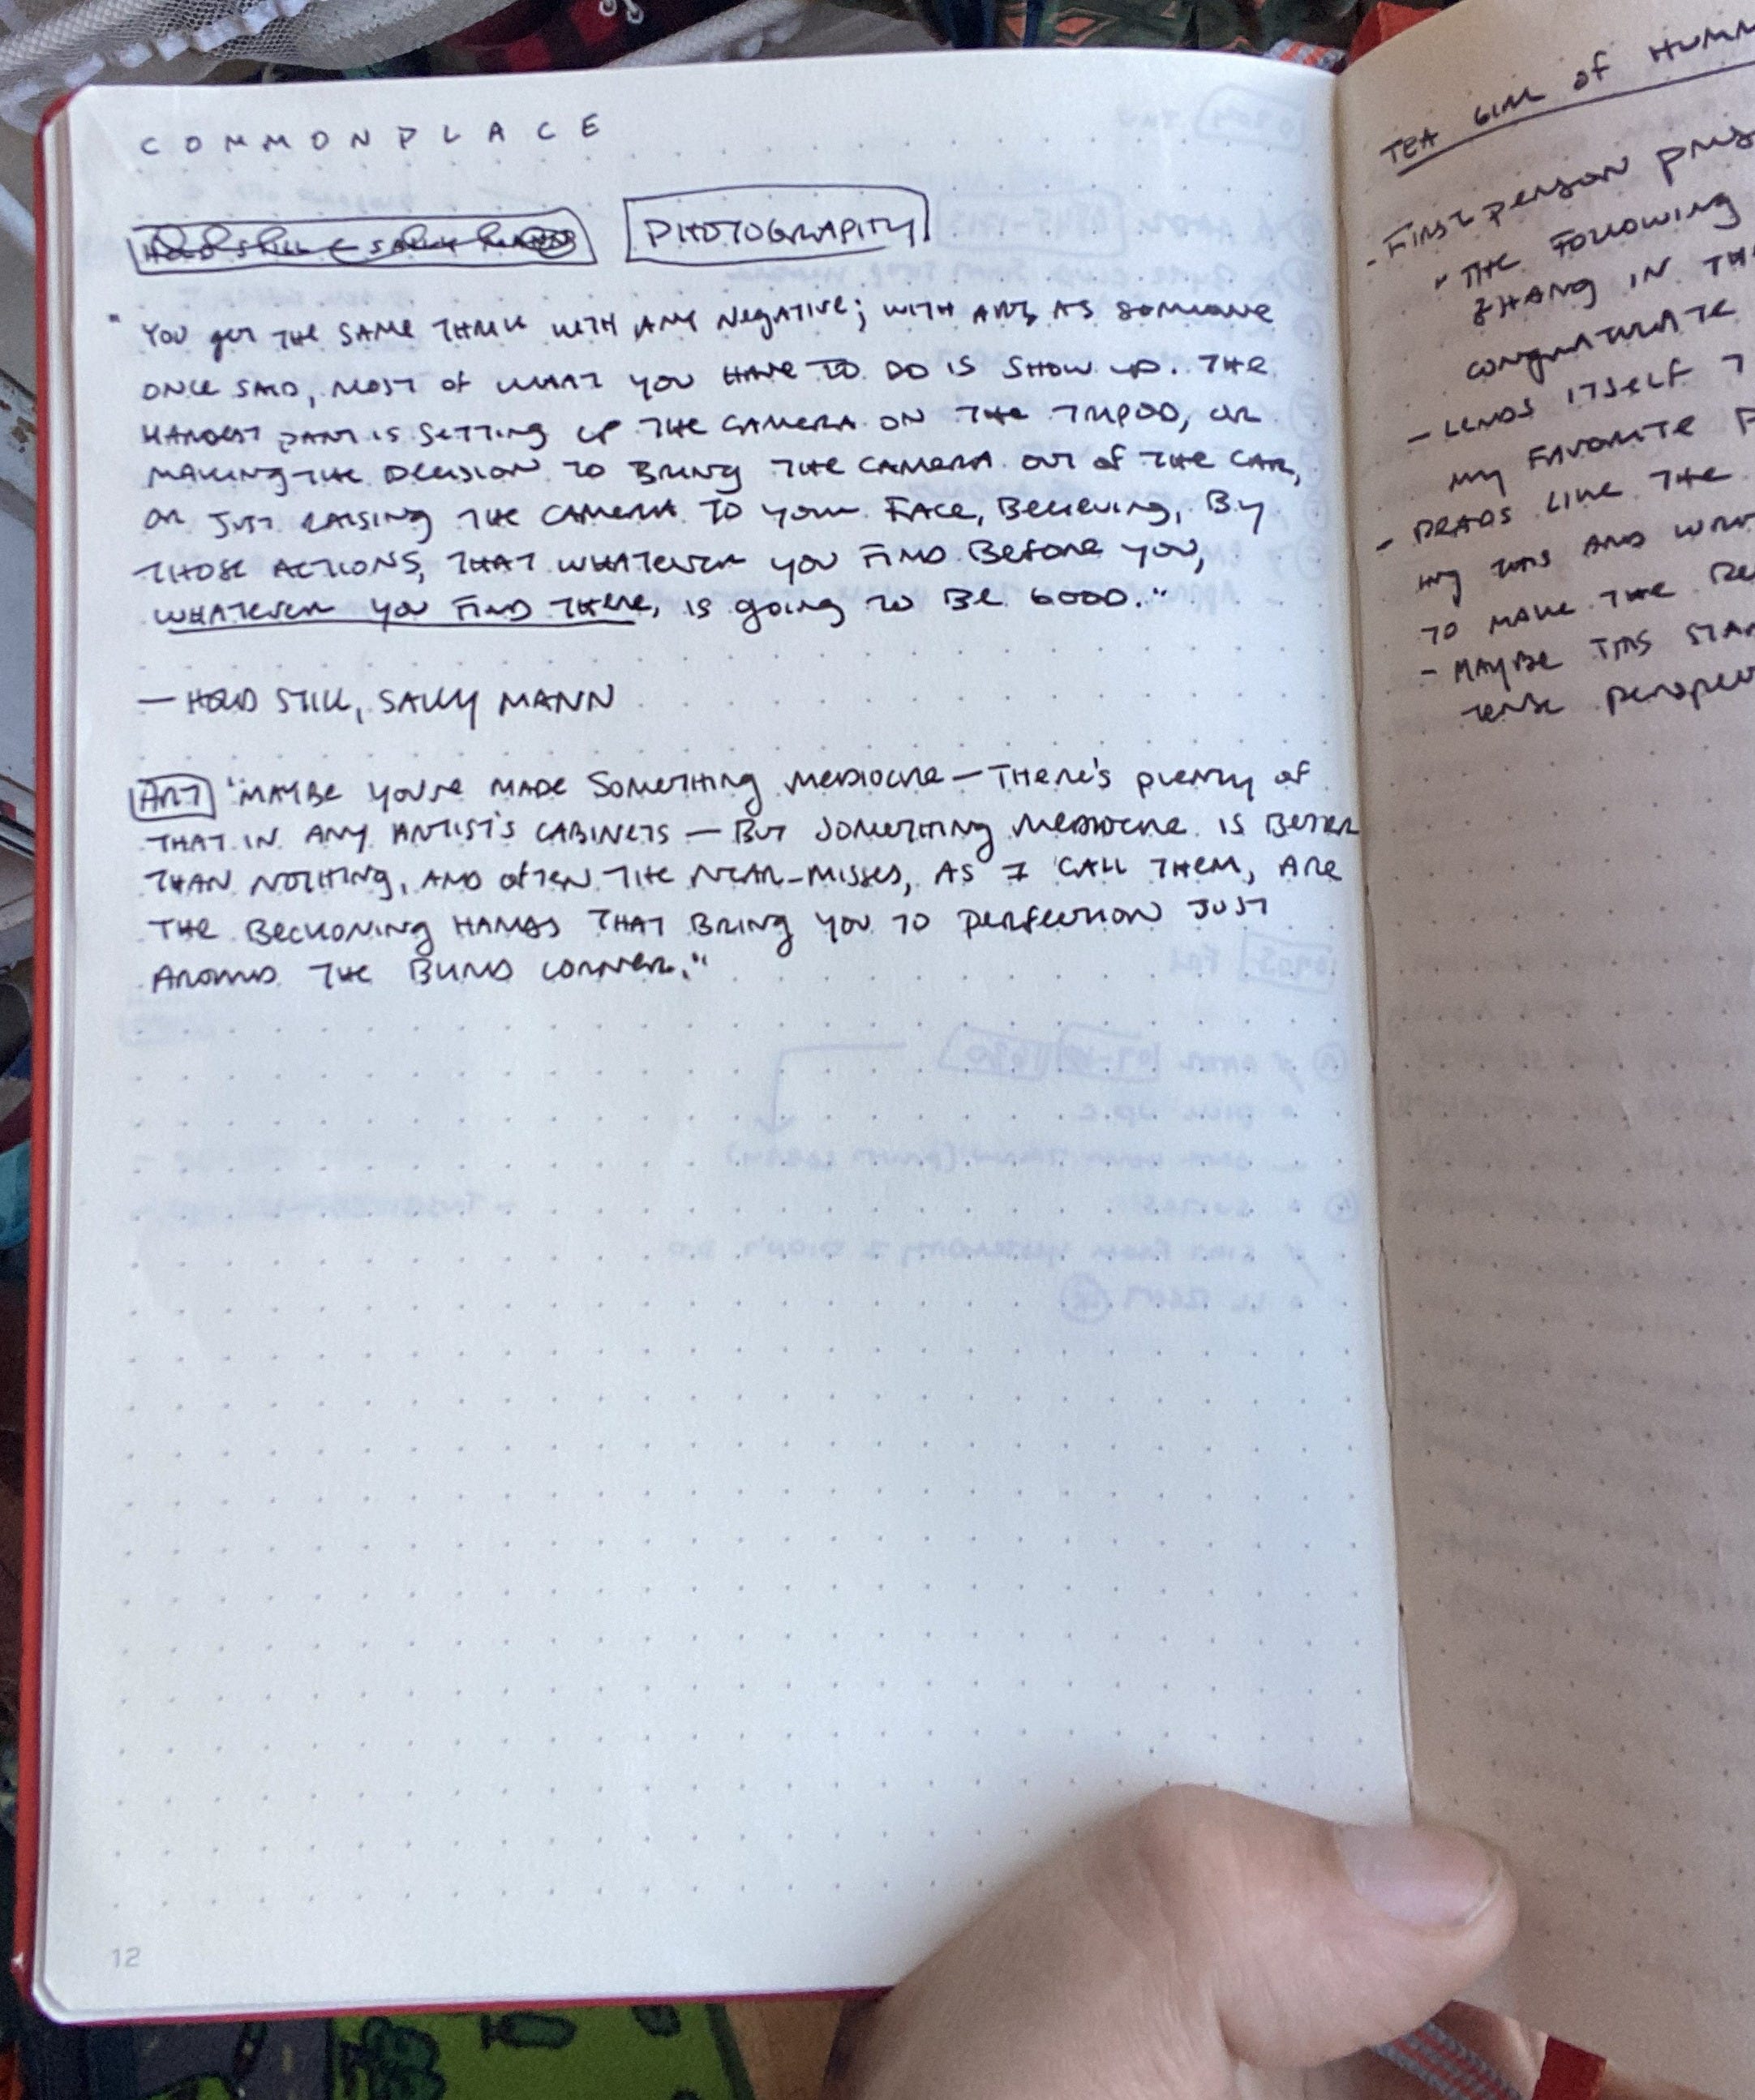 COMMONPLACE
HOLD STILL SALLY MANN
PHOTOGRAPHY
"YOU GET THE SAME THRILL WITH ANY NEGATIVE; WITH ART, AS SOMEONE
ONCE SAID, MOST OF WHAT YOU HAVE TO DO IS SHOW UP. THE
HARDEST PART IS SETTING UP THE CAMERA ON THE TRIPOD, OR
MAKING THE DECISION TO BRING THE CAMERA OUT OF THE CAR,
OR JUST RAISING THE CAMERA TO YOUR FACE, BELIEVING, BY
THOSE ACTIONS, THAT WHATEVER YOU FIND BEFORE YOU,
WHATEVER YOU FIND THERE, IS GOING TO BE GOOD."
— HOLD STILL, SALLY MANN
ART "MAYBE YOU'VE MADE SOMETHING MEDIOCRE — THERE'S PLENTY OF
THAT IN ANY ARTIST'S CABINETS — BUT SOMETHING MEDIOCRE IS BETTER
THAN NOTHING, AND OFTEN THE NEAR-MISSES, AS I CALL THEM, ARE
THE BECKONING HANDS THAT BRING YOU TO PERFECTION JUST
AROUND THE BLIND CORNER."
12
TEA GIRL OF
- FIRST PERSON
" THE FOLLOWING
ZHANG IN
CONGRATULATE
- LENDS ITSELF
MY FAVORITE
- READS LIKE THE
AND
TO MAKE THE
- MAYBE THIS
TENSE